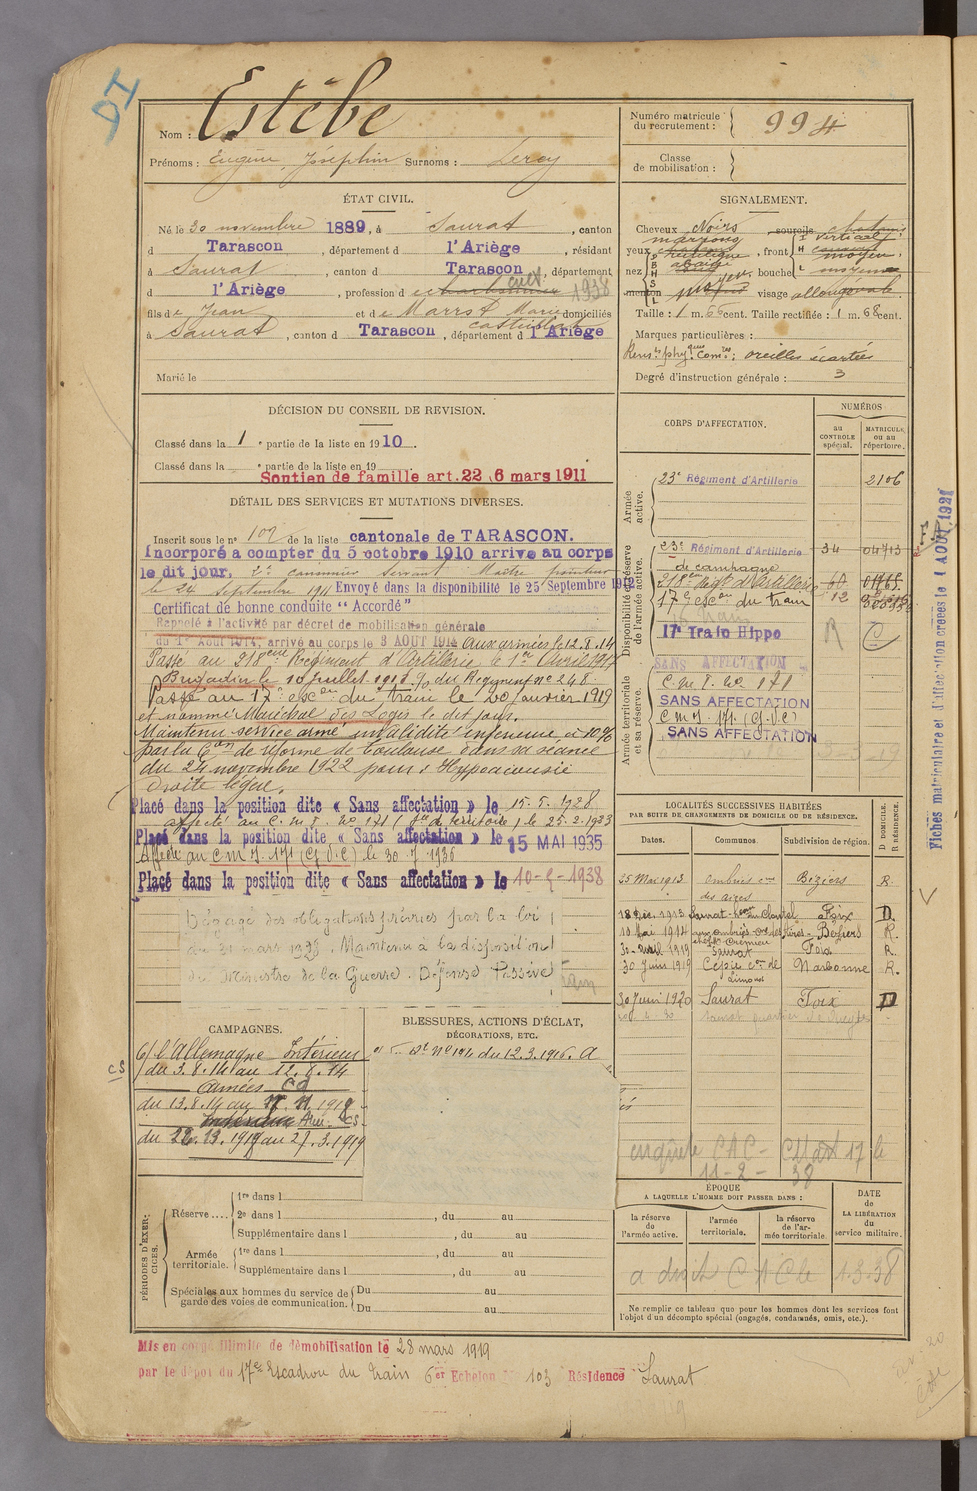 DI
Nom : Estèbe
Prénoms : Eugène Joséphin Surnoms : Leroy
Numéro matricule du recrutement : 994
Classe de mobilisation :
ÉTAT CIVIL.
Né le 30 novembre 1889, à Saurat, canton
d Tarascon, département d l'Ariège, résidant
à Saurat, canton d Tarascon, département
d l'Ariège, profession de cult. 1938
fils de Jean et de Marrot Marie domiciliés
à Saurat, canton d Tarascon, département d l'Ariège
Marié le
SIGNALEMENT.
Cheveux Noirs sourcils châtains
marrons
yeux front verticale
moyen
nez bouche moyenne
menton visage allongé
Taille : 1 m. 66 cent. Taille rectifiée : 1 m. 68 cent.
Marques particulières :
oreilles écartées
Degré d'instruction générale : 3
DÉCISION DU CONSEIL DE REVISION.
Classé dans la 1e partie de la liste en 1910.
Classé dans la e partie de la liste en 19
Soutien de famille art. 22 6 mars 1911
DÉTAIL DES SERVICES ET MUTATIONS DIVERSES.
Inscrit sous le n° 107 de la liste cantonale de TARASCON.
Incorporé a compter du 5 octobre 1910 arrive au corps
le dit jour. 2e canonnier servant Maître pointeur
le 24 septembre 1911 Envoyé dans la disponibilité le 25 Septembre 1912
Certificat de bonne conduite "Accordé"
Rappelé à l'activité par décret de mobilisation générale
du 1er Aout 1914, arrivé au corps le 3 AOUT 1914 Aux armées le 12.8.14
Passé au 218eme Régiment d'Artillerie le 1er Avril 1917
Brigadier le 10 juillet 1918 du Régiment n° 248.
Passé au 17e escon du train le 20 janvier 1919
et nommé Maréchal des Logis le dit jour.
Maintenu service armé invalidité inférieure à 10 %
par la Con de réforme de Toulouse dans sa séance
du 24 novembre 1922 pour : Hypoacousie
droite légère.
Placé dans la position dite « Sans affectation » le 15.5.1928
affecté au C.M.I. n° 171 le 25.2.1933
Placé dans la position dite « Sans affectation » le 15 MAI 1935
Affecté au C M I 171 (Cf V.C) le 30.7.1936
Placé dans la position dite « Sans affectation » le 10-5-1938
Dégagé des obligations prévues par la loi
du 31 mars 1928. Maintenu à la disposition
du Ministre de la Guerre. Défense Passive
CORPS D'AFFECTATION.
NUMÉROS
au CONTROLE spécial.
MATRICULE ou au répertoire.
Armée active.
23e Régiment d'Artillerie 2106
Disponibilité et réserve de l'armée active.
23e Régiment d'Artillerie 34 04713
de campagne
218eme Régt d'Artillerie
17e escon du train 12
17e Train Hippo
Armée territoriale et sa réserve.
SANS AFFECTATION
C.M.I. N° 171
SANS AFFECTATION
C M I. 171. (Cf. V.C)
SANS AFFECTATION
LOCALITÉS SUCCESSIVES HABITÉES
PAR SUITE DE CHANGEMENTS DE DOMICILE OU DE RÉSIDENCE.
Dates. Communes. Subdivision de région. D DOMICILE. R RÉSIDENCE.
25 Mai 1913 Béziers R.
18 Déc. 1913 Saurat Foix D.
10 Mai 1914 Béziers R.
Avril 1919 Saurat Foix R.
30 Juin 1919 Cépie con de Limoux Narbonne R.
20 Juin 1920 Saurat Foix D
enquête CAC - 17 le
11-2-38
CAMPAGNES.
C/ l'Allemagne Intérieur
du 3.8.14 au 12.8.14
Armées
du 13.8.14 au
du au 27.3.1919
CS
BLESSURES, ACTIONS D'ÉCLAT,
DÉCORATIONS, ETC.
N° 194 du 12.3.1916. A
PÉRIODES D'EXERCICES.
Réserve....
1re dans l
2e dans l , du au
Supplémentaire dans l , du au
Armée territoriale.
1re dans l , du au
Supplémentaire dans l , du au
Spéciales aux hommes du service de garde des voies de communication.
Du au
Du au
ÉPOQUE
A LAQUELLE L'HOMME DOIT PASSER DANS :
la réserve de l'armée active. l'armée territoriale. la réserve de l'armée territoriale.
DATE DE LA LIBÉRATION du service militaire.
a droit C
Ne remplir ce tableau que pour les hommes dont les services font
l'objet d'un décompte spécial (engagés, condamnés, omis, etc.).
Mis en congé illimité de démobilisation le 28 mars 1919
par le dépôt du 17e Escadron du train 6e Echelon N° 103 Résidence Saurat
Fiches matriculaire et d'affectation créées le 1 AOUT 1928